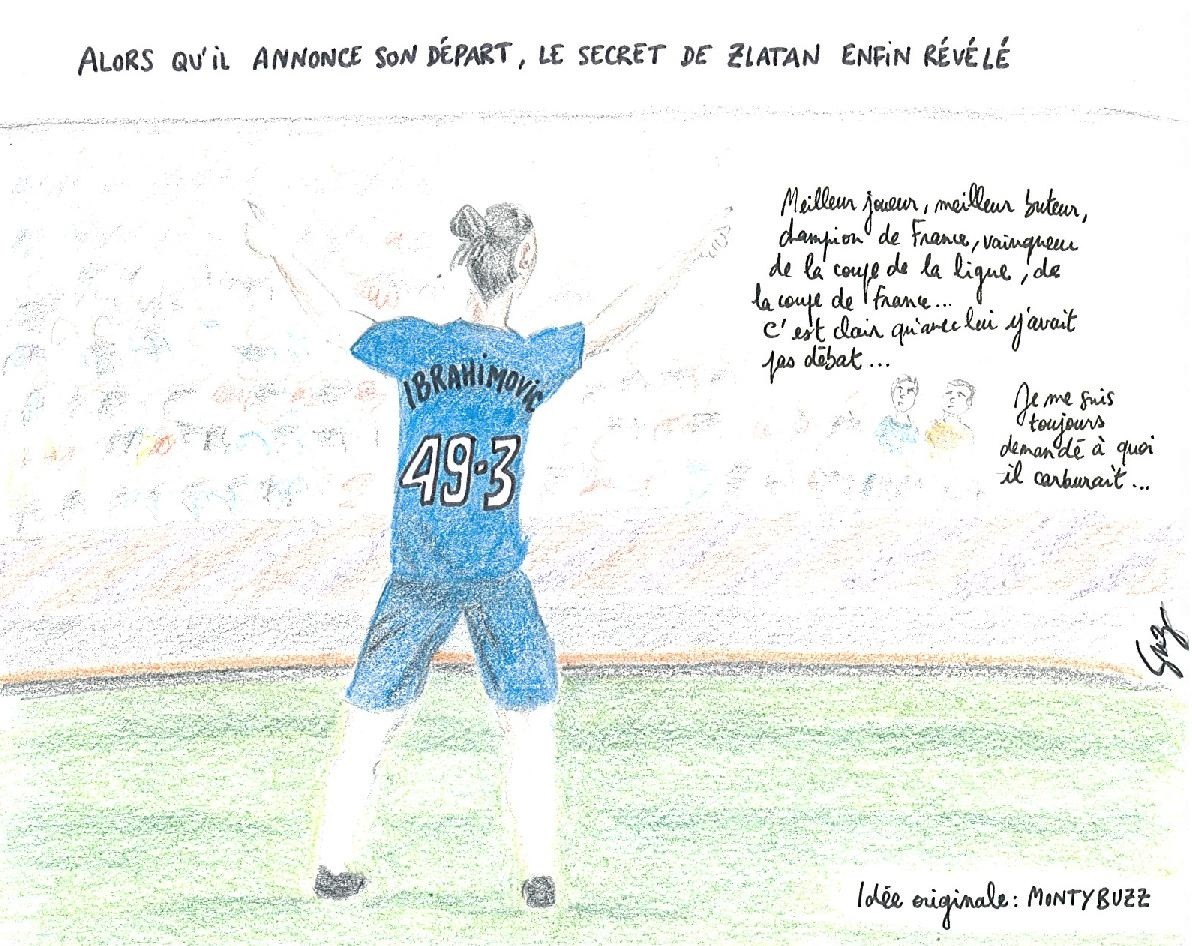 ALORS QU'IL ANNONCE SON DÉPART, LE SECRET DE ZLATAN ENFIN RÉVÉLÉ
Meilleur joueur, meilleur buteur,
champion de France, vainqueur
de la coupe de la ligue, de
la coupe de France...
c'est clair qu'avec lui y'avait
pas débat...
Je me suis
toujours
demandé à quoi
il carburait...
IBRAHIMOVIC
49.3
Idée originale : MONTYBUZZ